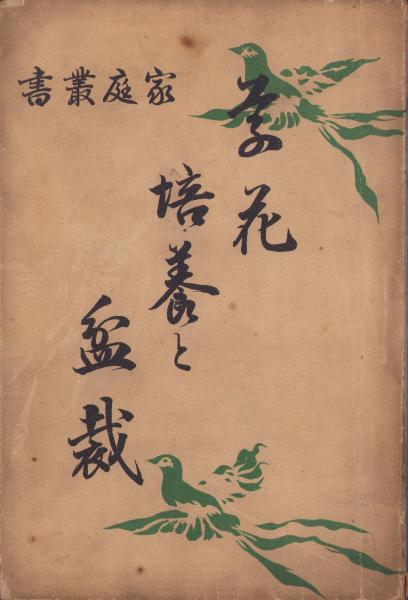 家庭叢書
草花
培養と
盆裁